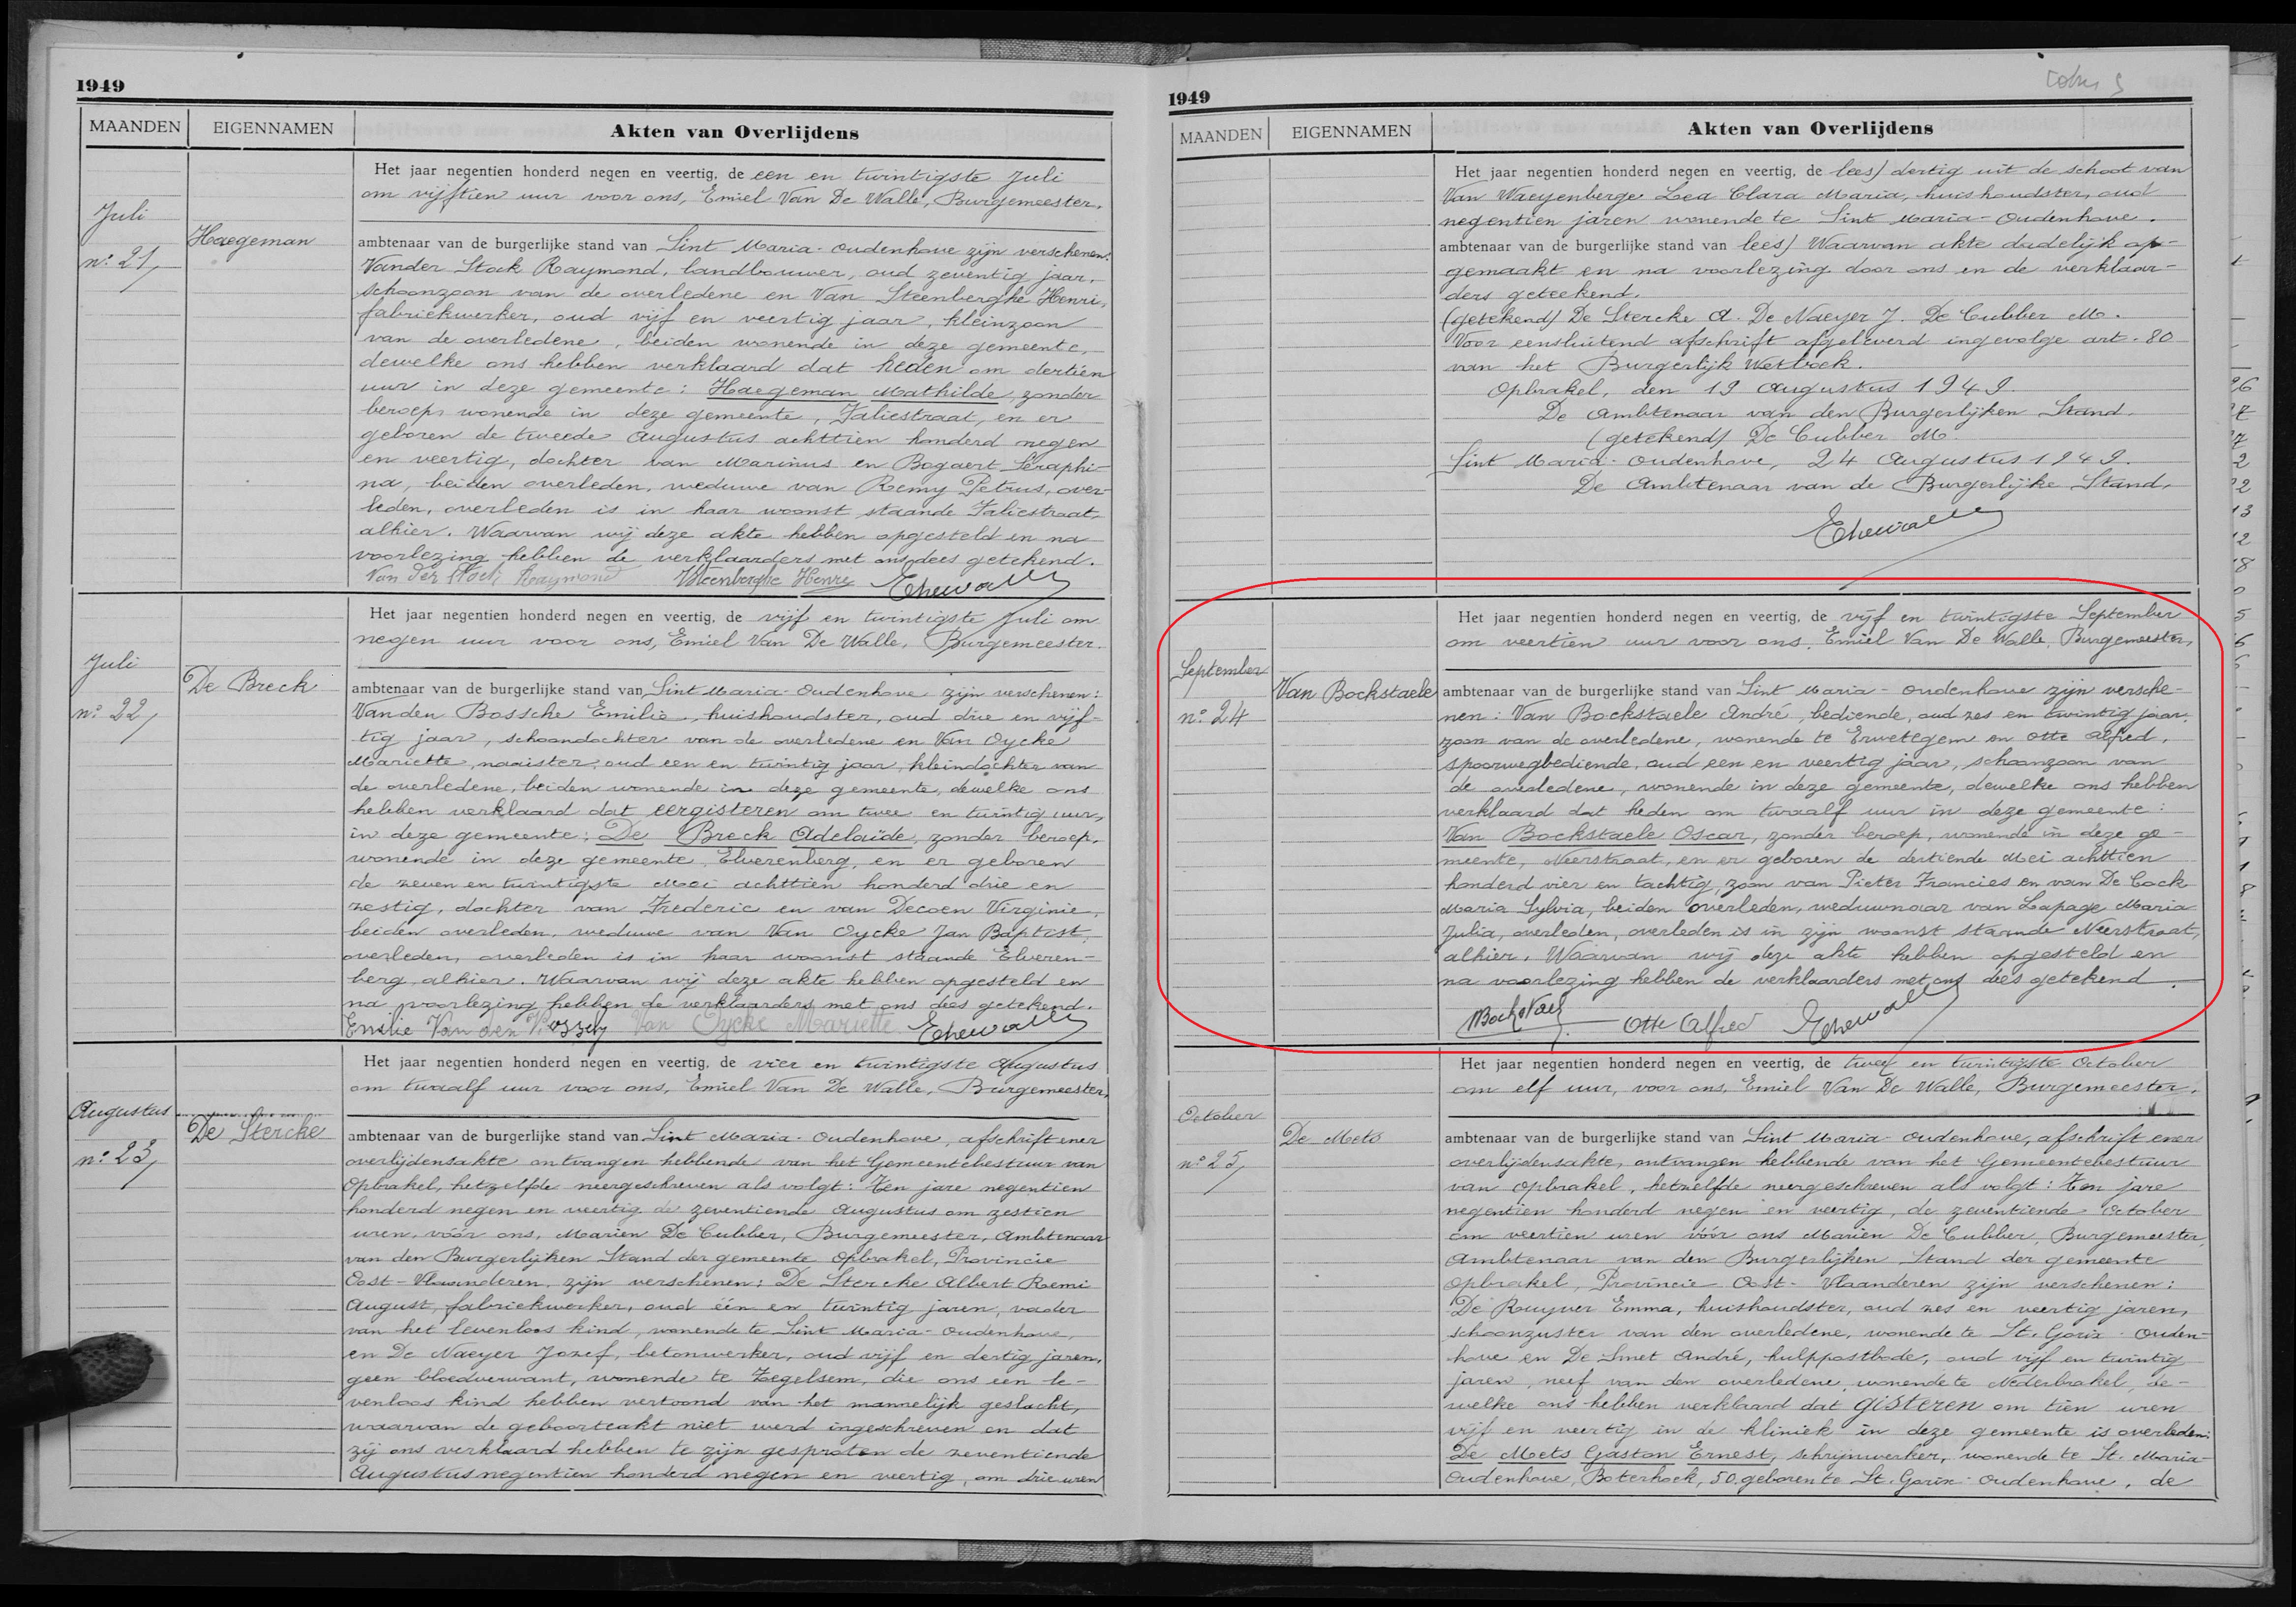 1949
MAANDEN EIGENNAMEN Akten van Overlijdens
Juli
nº 21,
Haegeman
Het jaar negentien honderd negen en veertig, de een en twintigste Juli
om vijftien uur voor ons, Emiel Van De Walle, Burgemeester.
ambtenaar van de burgerlijke stand van Sint Maria-Oudenhove zijn verschenen:
Vander Stock Raymond, landbouwer, oud zeventig jaar,
schoonzoon van de overledene en Van Steenberghe Henri,
fabriekwerker, oud vijf en veertig jaar, kleinzoon
van de overledene, beiden wonende in deze gemeente,
dewelke ons hebben verklaard dat heden om dertien
uur in deze gemeente: Haegeman Mathilde, zonder
beroep, wonende in deze gemeente, Faliestraat, en er
geboren de tweede Augustus achttien honderd negen
en veertig, dochter van Marinus en Bogaert Seraphi-
na, beiden overleden, weduwe van Remy Petrus, over-
leden, overleden is in haar woonst staande Faliestraat,
alhier. Waarvan wij deze akte hebben opgesteld en na
voorlezing hebben de verklaarders met ons dees getekend.
Van der Stock Raymond VSteenberghe Henri
Juli
nº 22,
De Breck
Het jaar negentien honderd negen en veertig, de vijf en twintigste Juli om
negen uur voor ons, Emiel Van De Walle, Burgemeester.
ambtenaar van de burgerlijke stand van Sint Maria-Oudenhove zijn verschenen:
Vanden Bossche Emilie, huishoudster, oud drie en vijf-
tig jaar, schoondochter van de overledene en Van Oycke
Mariette, naaister, oud een en twintig jaar, kleindochter van
de overledene, beiden wonende in deze gemeente, dewelke ons
hebben verklaard dat eergisteren om twee en twintig uur,
in deze gemeente: De Breck Adelaïde, zonder beroep,
wonende in deze gemeente, Elverenberg, en er geboren
de zeven en twintigste Mei achttien honderd drie en
zestig, dochter van Frederic en van Decoen Virginie,
beiden overleden, weduwe van Van Oycke Jan Baptist,
overleden, overleden is in haar woonst staande Elveren-
berg, alhier. Waarvan wij deze akte hebben opgesteld en
na voorlezing hebben de verklaarders met ons dees getekend.
Emilie Van den Bossche Van Oycke Mariette
Augustus
nº 23,
De Stercke
Het jaar negentien honderd negen en veertig, de vier en twintigste Augustus
om twaalf uur voor ons, Emiel Van De Walle, Burgemeester,
ambtenaar van de burgerlijke stand van Sint Maria-Oudenhove, afschrift ener
overlijdensakte ontvangen hebbende van het Gemeentebestuur van
Opbrakel, hetzelfde neergeschreven als volgt: Ten jare negentien
honderd negen en veertig de zeventiende Augustus om zestien
uren, vóór ons, Marien De Cubber, Burgemeester, Ambtenaar
van den Burgerlijken Stand der gemeente Opbrakel, Provincie
Oost-Vlaanderen, zijn verschenen: De Stercke Albert Remi
August, fabriekwerker, oud één en twintig jaren, vader
van het levenloos kind, wonende te Sint Maria-Oudenhove,
en De Naeyer Jozef, betonwerker, oud vijf en dertig jaren,
geen bloedverwant, wonende te Zegelsem, die ons een le-
venloos kind hebben vertoond van het mannelijk geslacht,
waarvan de geboorteakt niet werd ingeschreven en dat
zij ons verklaard hebben te zijn gesproten de zeventiende
Augustus negentien honderd negen en veertig, om drie uren
1949
MAANDEN EIGENNAMEN Akten van Overlijdens
Het jaar negentien honderd negen en veertig, de lees) dertig uit de schoot van
Van Waeyenberge Lea Clara Maria, huishoudster, oud
negentien jaren wonende te Sint Maria-Oudenhove.
ambtenaar van de burgerlijke stand van lees) Waarvan akte dadelijk op-
gemaakt en na voorlezing door ons en de verklaar-
ders geteekend.
(getekend) De Stercke A. De Naeyer J. De Cubber M.
Voor eensluitend afschrift afgeleverd ingevolge art. 80
van het Burgerlijk Wetboek.
Opbrakel, den 19 Augustus 1949.
De Ambtenaar van den Burgerlijken Stand.
(getekend) De Cubber M.
Sint Maria-Oudenhove, 24 Augustus 1949.
De Ambtenaar van de Burgerlijke Stand,
September
nº 24
Van Bockstaele
Het jaar negentien honderd negen en veertig, de vijf en twintigste September
om veertien uur voor ons, Emiel Van De Walle, Burgemeester,
ambtenaar van de burgerlijke stand van Sint Maria-Oudenhove zijn versche-
nen: Van Bockstaele André, bediende, oud zes en twintig jaar,
zoon van de overledene, wonende te Erwetegem en Otte Alfred,
spoorwegbediende, oud een en veertig jaar, schoonzoon van
de overledene, wonende in deze gemeente, dewelke ons hebben
verklaard dat heden om twaalf uur in deze gemeente:
Van Bockstaele Oscar, zonder beroep, wonende in deze ge-
meente, Neerstraat, en er geboren de dertiende Mei achttien
honderd vier en tachtig, zoon van Pieter Francies en van De Cock
Maria Sylvia, beiden overleden, weduwnaar van Lapage Maria
Julia, overleden, overleden is in zijn woonst staande Neerstraat,
alhier. Waarvan wij deze akte hebben opgesteld en
na voorlezing hebben de verklaarders met ons dees getekend.
Otte Alfred
October
nº 25,
De Mets
Het jaar negentien honderd negen en veertig, de twee en twintigste October
om elf uur, voor ons, Emiel Van De Walle, Burgemeester.
ambtenaar van de burgerlijke stand van Sint Maria-Oudenhove, afschrift ener
overlijdensakte, ontvangen hebbende van het Gemeentebestuur
van Opbrakel, hetzelfde neergeschreven als volgt: Ten jare
negentien honderd negen en veertig, de zeventiende October
om veertien uren vóór ons Marien De Cubber, Burgemeester,
Ambtenaar van den Burgerlijken Stand der gemeente
Opbrakel, Provincie Oost-Vlaanderen zijn verschenen:
De Ruyver Emma, huishoudster, oud zes en veertig jaren,
schoonzuster van den overledene, wonende te St. Gorix-Ouden-
hove en De Smet André, hulppostbode, oud vijf en twintig
jaren, neef van den overledene, wonende te Nederbrakel, de-
welke ons hebben verklaard dat gisteren om tien uren
vijf en veertig in de kliniek in deze gemeente is overleden:
De Mets Gaston Ernest, schrijnwerker, wonende te St. Maria-
Oudenhove, Boterhoek, 50, geboren te St. Gorix-Oudenhove, de